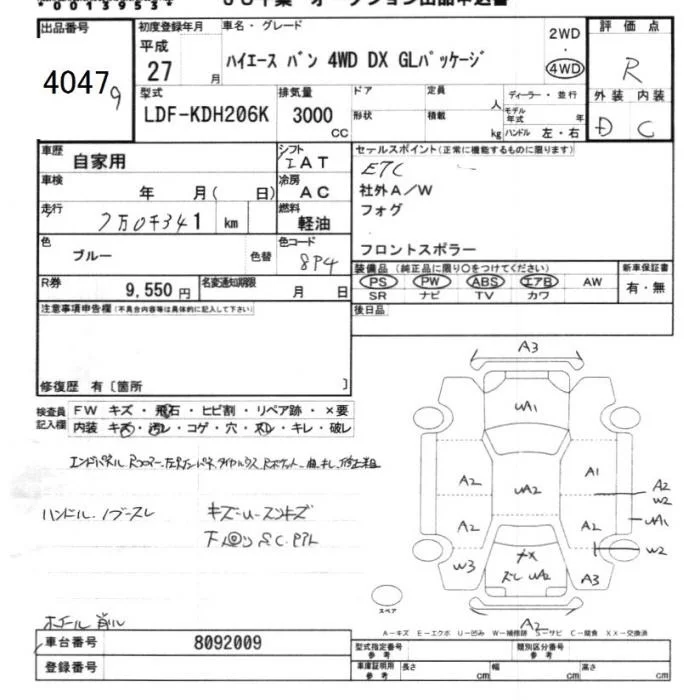 00139531
出品番号
4047 9
初度登録年月
平成
27 月
車名・グレード
ハイエース バン 4WD DX GLパッケージ
2WD
・
4WD
評価点
R
型式
LDF-KDH206K
排気量
3000
CC
ドア
定員
人
形状
積載
kg
ディーラー・並行
モデル年式 年
ハンドル 左・右
外装 内装
D C
車歴
自家用
シフト
I AT
車検
年 月( 日)
冷房
AC
走行
7万0千341 km
燃料
軽油
色
ブルー
色替
色コード
8P4
R券
9,550 円
名変通知期限
月 日
セールスポイント(正常に機能するものに限ります)
ETC
社外A/W
フォグ
フロントスポラー
装備品 (純正品に限り○をつけてください)
PS PW ABS エアB AW
SR ナビ TV カワ
新車保証書
有・無
後日品
注意事項申告欄(不具合内容等は具体的に記入して下さい)
修復歴 有〔箇所 〕
検査員
記入欄
FW キズ・飛石・ヒビ割・リペア跡・×要
内装 キズ・汚レ・コゲ・穴・スレ・キレ・破レ
ハンドル、ノブースレ
キズ-U-スンキズ
A3
UA1
A2
UA2
A1
A2
W2
A2
A2
UA1
W2
W3
ズレ UA2
A3
A2
スペア
A-キズ E-エクボ U-凹み W-補修跡 S-サビ C-腐食 XX-交換済
車台番号
8092009
登録番号
型式指定番号
参考
類別区分番号
参考
車庫証明用
参考
長さ cm
幅 cm
高さ cm